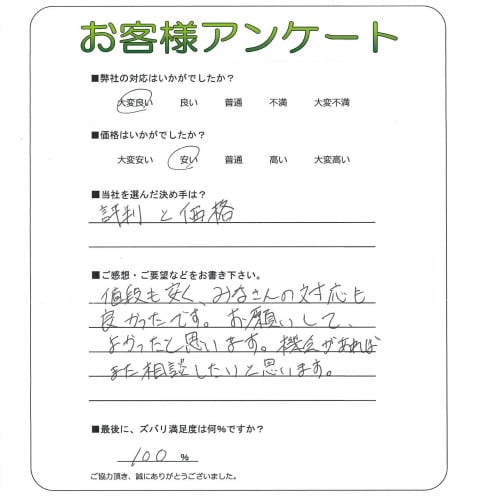 お客様アンケート
■弊社の対応はいかがでしたか？
大変良い 良い 普通 不満 大変不満
■価格はいかがでしたか？
大変安い 安い 普通 高い 大変高い
■当社を選んだ決め手は？
評判と価格
■ご感想・ご要望などをお書き下さい。
値段も安く、みなさんの対応も
良かったです。お願いして、
よかったと思います。機会があれば
また相談したいと思います。
■最後に、ズバリ満足度は何％ですか？
100 %
ご協力頂き、誠にありがとうございました。